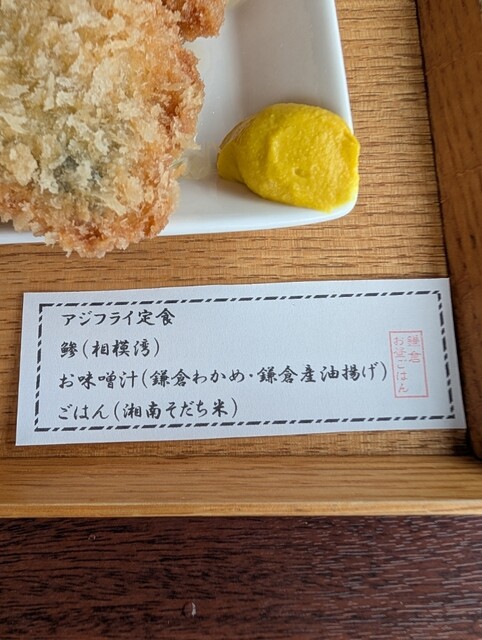 アジフライ定食
鯵(相模湾)
お味噌汁(鎌倉わかめ・鎌倉産油揚げ)
ごはん(湘南そだち米)
鎌倉
お釜ごはん